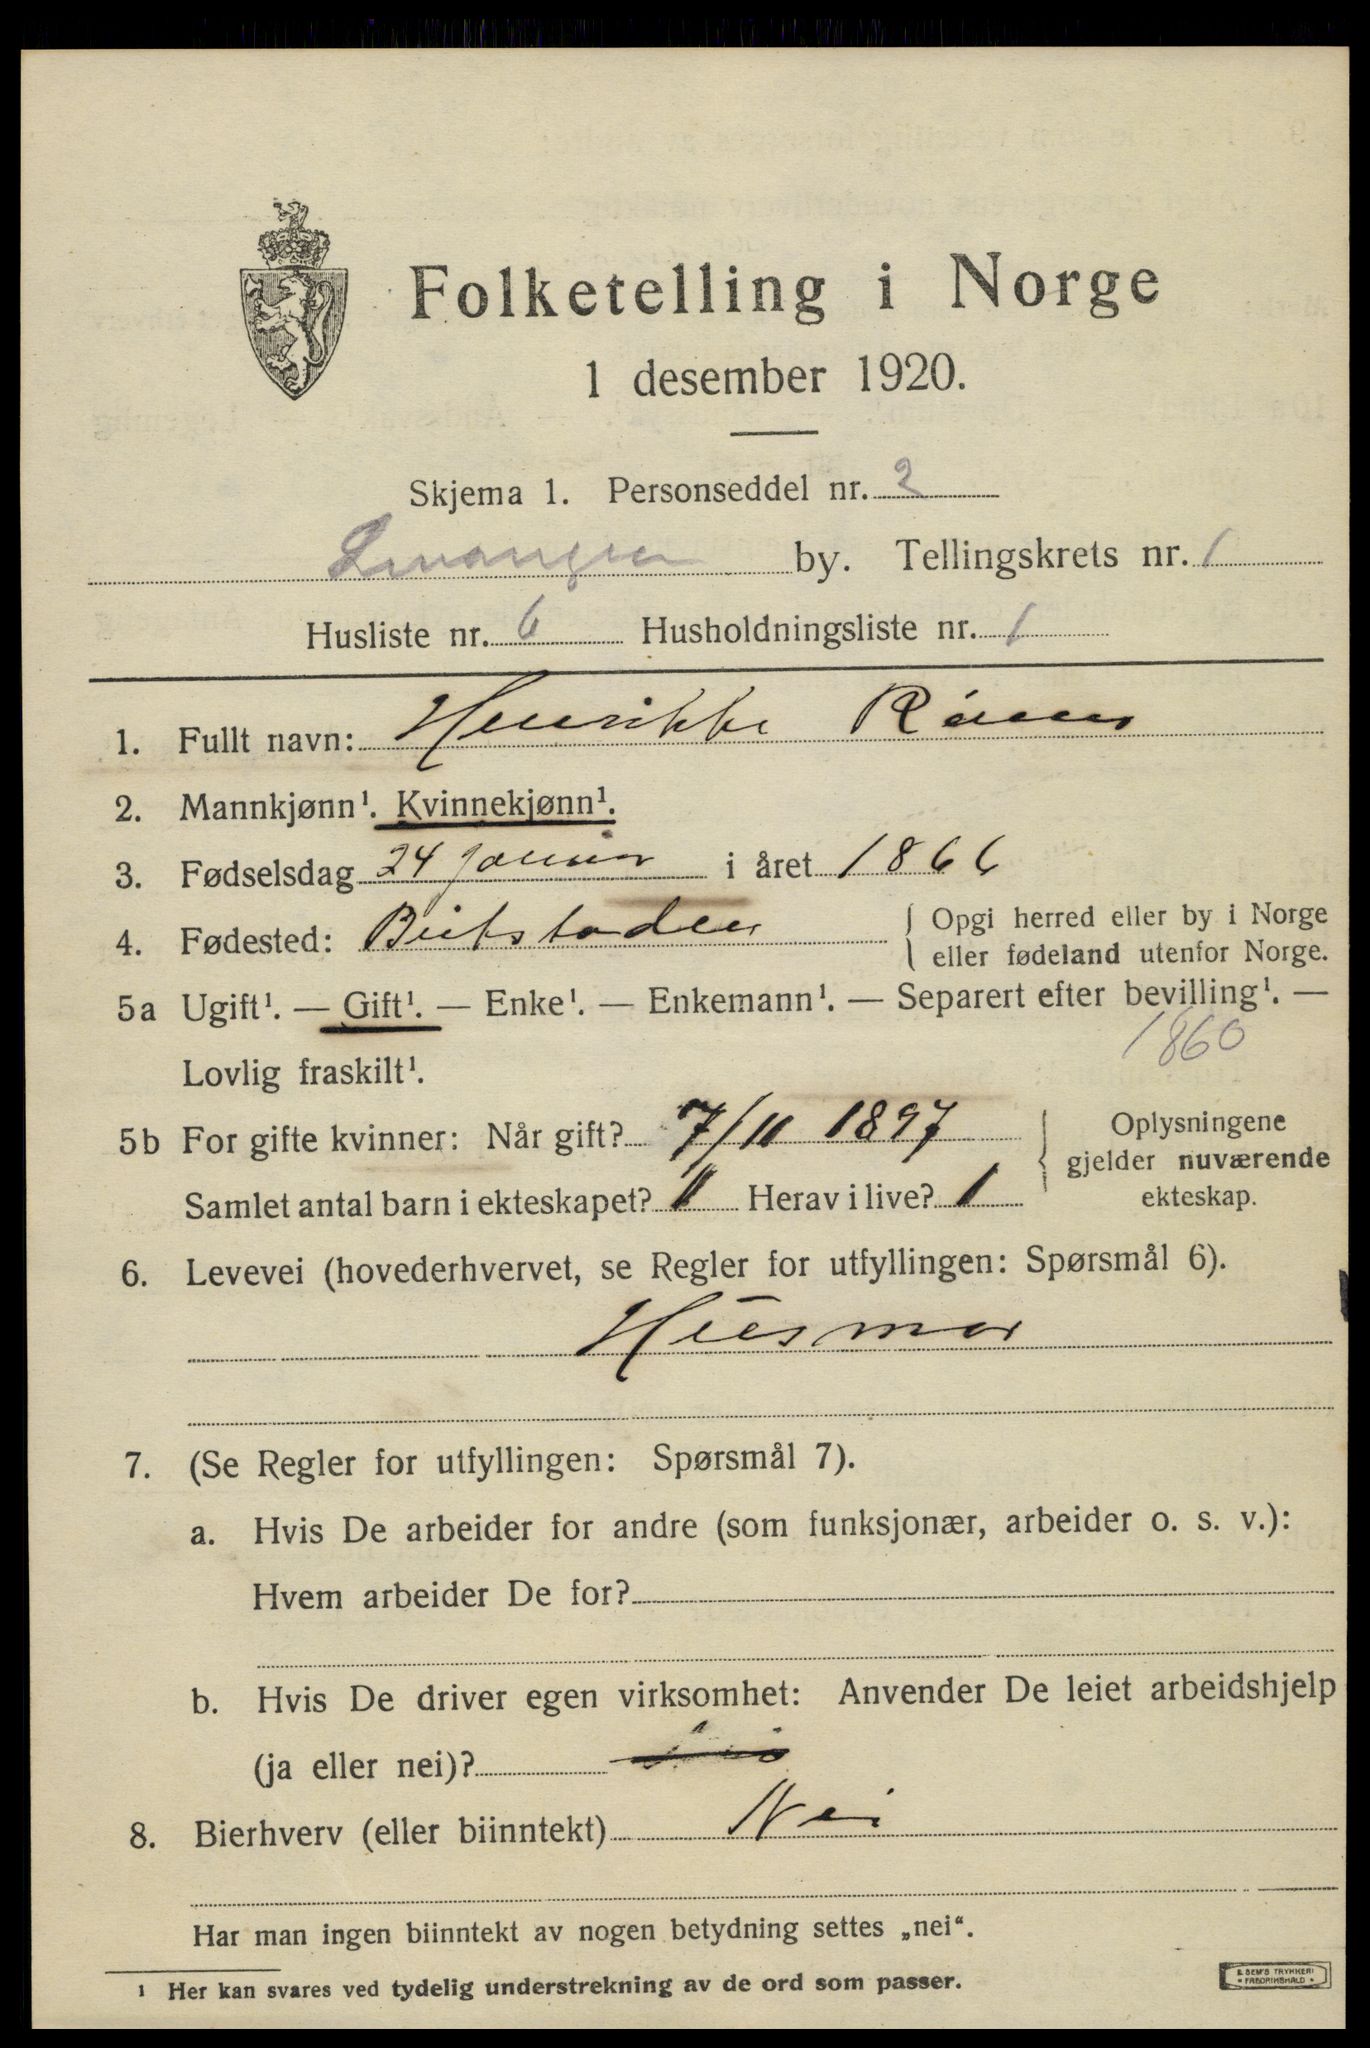 Folketelling i Norge
1 desember 1920.
Skjema 1. Personseddel nr. 2
Levanger by. Tellingskrets nr. 1
Husliste nr. 6 Husholdningsliste nr. 1
1. Fullt navn: Henrikke
2. Mannkjønn¹. Kvinnekjønn¹.
3. Fødselsdag 24 januar i året 1866
4. Fødested: Beitstaden { Opgi herred eller by i Norge
eller fødeland utenfor Norge.
5a Ugift¹. — Gift¹. — Enke¹. — Enkemann¹. — Separert efter bevilling¹. —
1860
Lovlig fraskilt¹.
5b For gifte kvinner: Når gift? 7/11 1897
Samlet antal barn i ekteskapet? Herav i live? 1
{ Oplysningene
gjelder nuværende
ekteskap.
6. Levevei (hovederhvervet, se Regler for utfyllingen: Spørsmål 6).
Husmor
7. (Se Regler for utfyllingen: Spørsmål 7).
a. Hvis De arbeider for andre (som funksjonær, arbeider o. s. v.):
Hvem arbeider De for?
b. Hvis De driver egen virksomhet: Anvender De leiet arbeidshjelp
(ja eller nei)?
8. Bierhverv (eller biinntekt) Nei
Har man ingen biinntekt av nogen betydning settes „nei“.
¹ Her kan svares ved tydelig understrekning av de ord som passer.
E. SEM'S TRYKKERI
FREDRIKSHALD